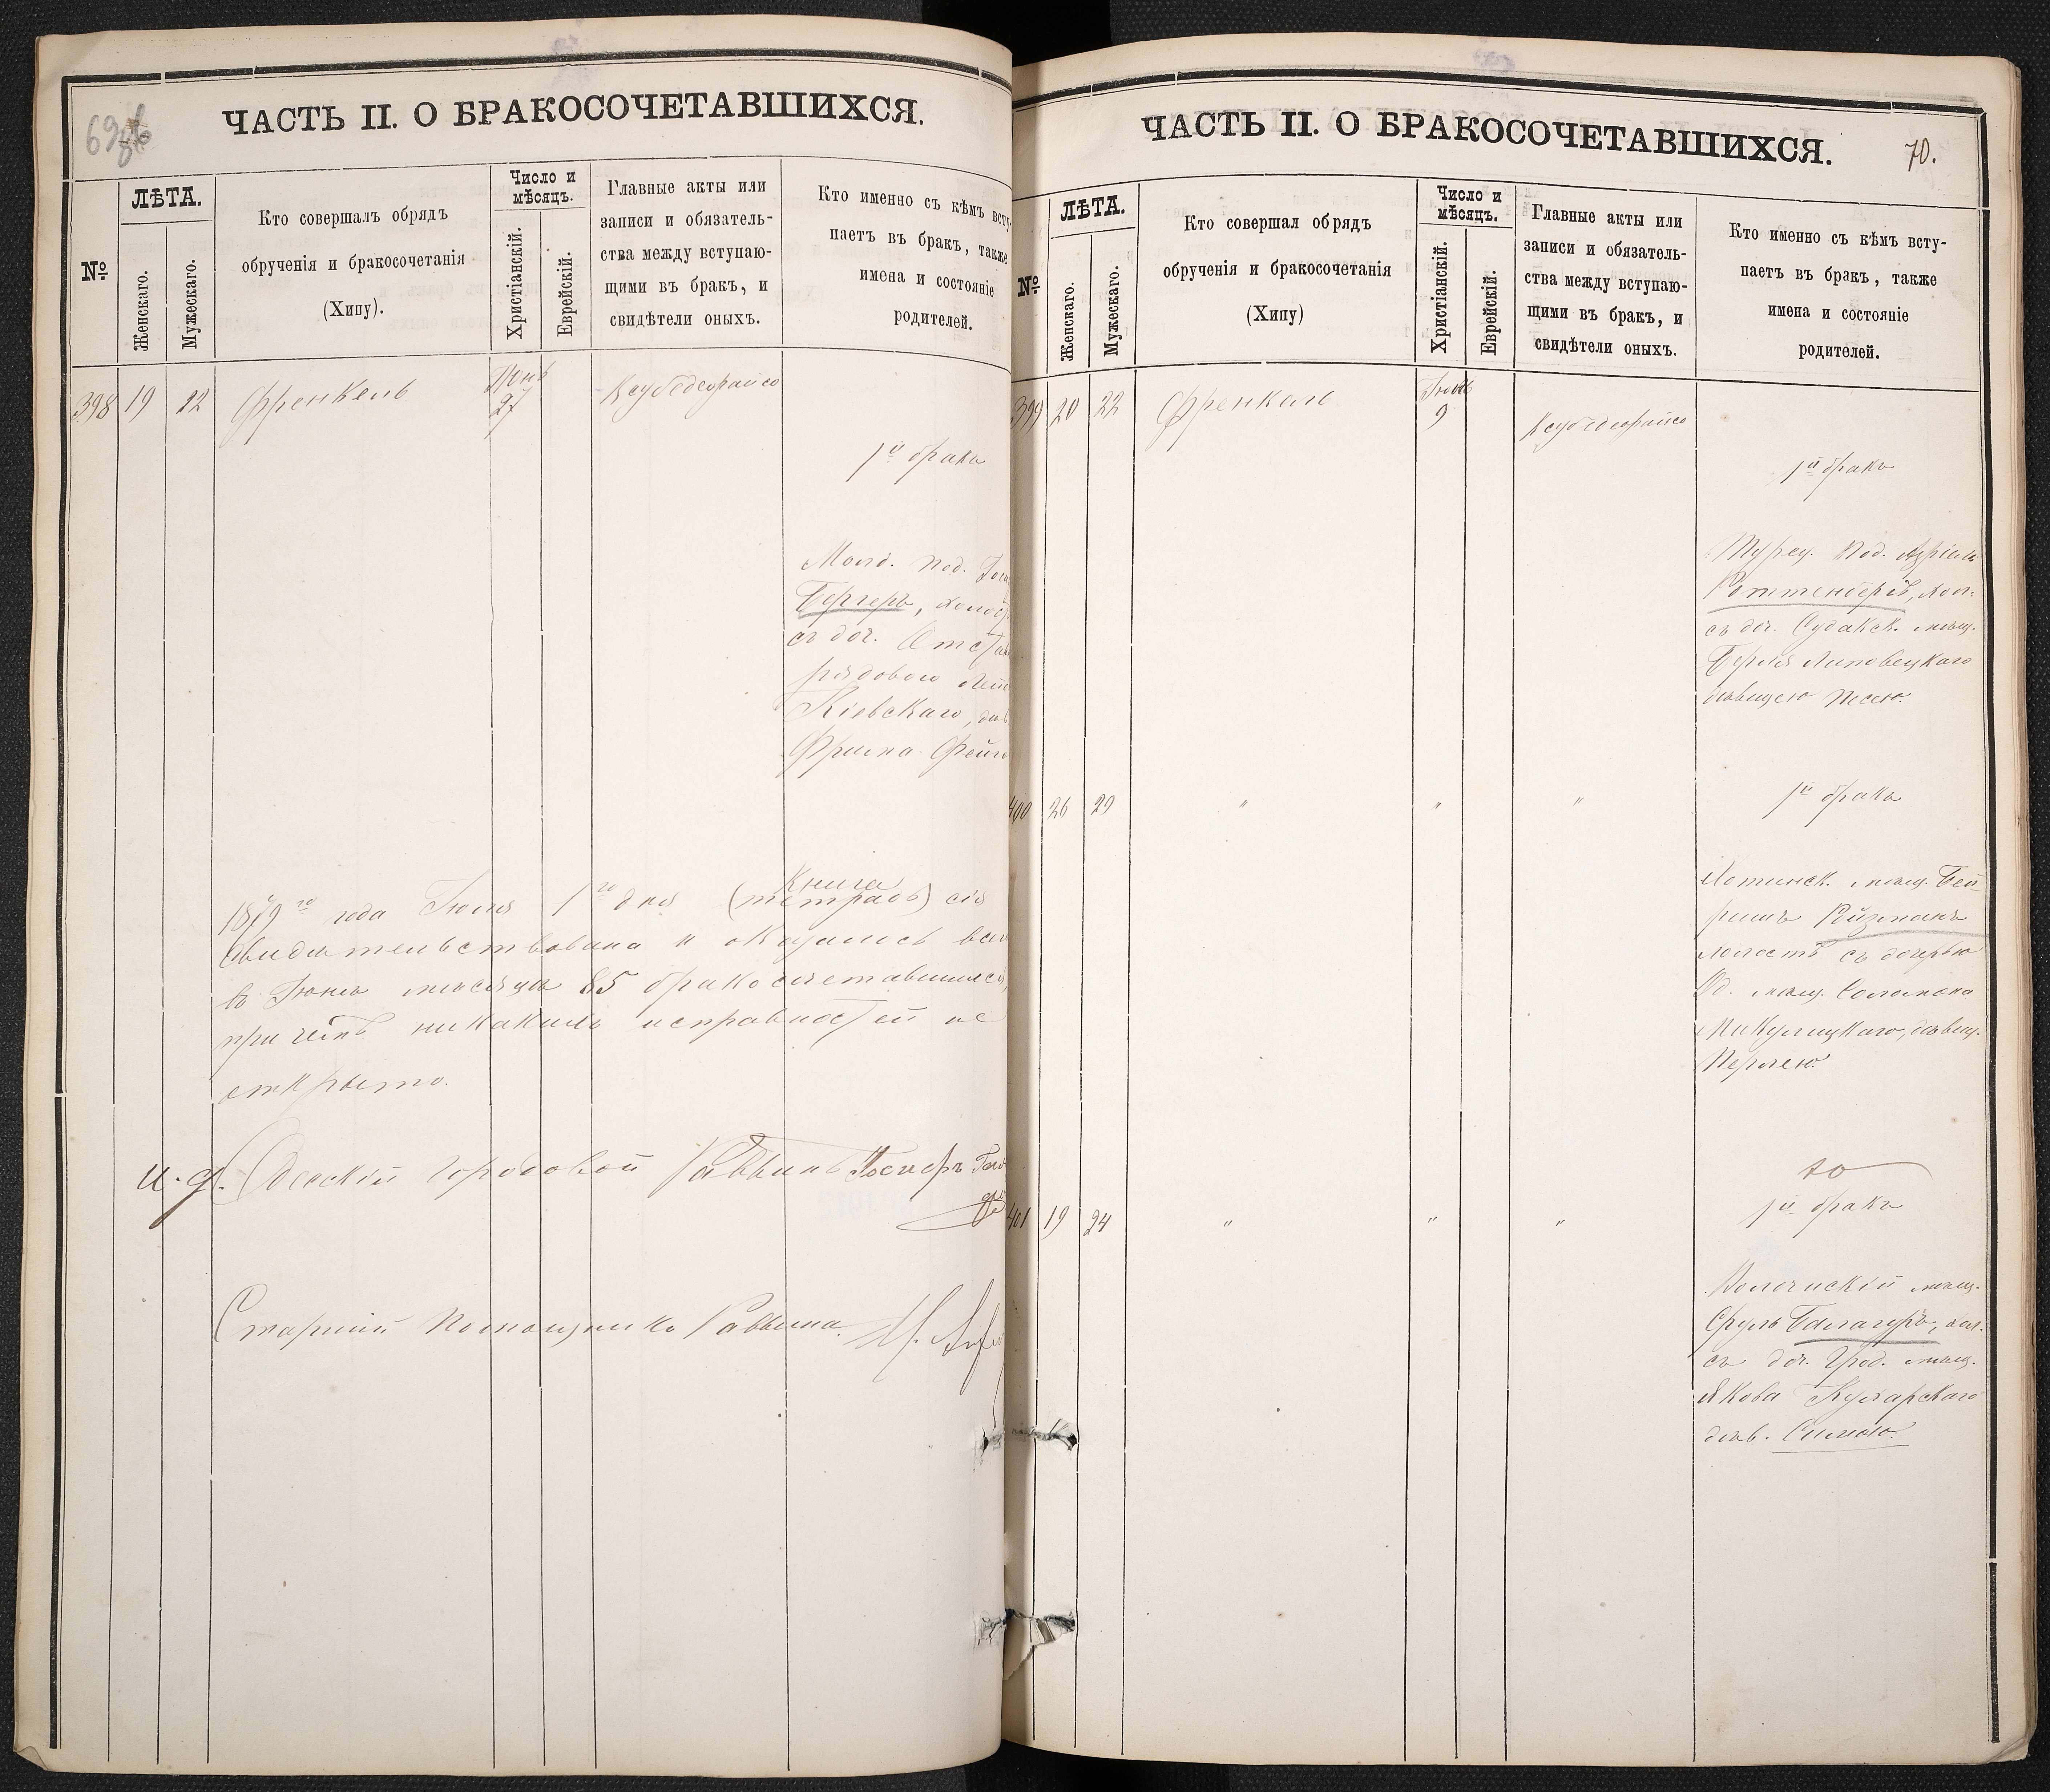 ЧАСТЬ II. О БРАКОСОЧЕТАВШИХСЯ.
№
ЛѢТА.
Женскаго.
Мужескаго.
Кто совершалъ обрядъ
обрученія и бракосочетанія
(Хипу).
Число и
мѣсяцъ.
Христіанскій.
Еврейскій.
Главные акты или
записи и обязатель-
ства между вступаю-
щими въ бракъ, и
свидѣтели оныхъ.
Кто именно съ кѣмъ всту-
паетъ въ бракъ, также
имена и состояніе
родителей.
398 19 22 Френкель 27
1й бракъ
Молд. под.
Бергеръ,
съ доч.
рядового
Кіевскаго,
Книга
1879го года Іюля 1го дня (тетрадь) сія
свидѣтельствована и оказалось всего
въ Іюнѣ мѣсяцѣ 85 бракосочетавшихся,
при чемъ никакихъ исправностей не
открыто.
И. д. Одесскій Городовой Раввинъ
Старшій Помощникъ Раввина
ЧАСТЬ II. О БРАКОСОЧЕТАВШИХСЯ.
70.
№
ЛѢТА.
Женскаго.
Мужескаго.
Кто совершал обрядъ
обрученія и бракосочетанія
(Хипу)
Число и
мѣсяцъ.
Христіанскій.
Еврейскій.
Главные акты или
записи и обязатель-
ства между вступаю-
щими въ бракъ, и
свидѣтели оныхъ.
Кто именно съ кѣмъ всту-
паетъ въ бракъ, также
имена и состояніе
родителей.
399 20 22 Френкель Іюль
9
1й бракъ
Турец. под. Азріель
Роттенбергъ, хол.
съ доч. Судакск. мѣщ.
Берля Липовецкаго
дѣвицею Песею.
400 26 29 " " " 1й бракъ
Хотинск. мѣщ. Бей-
ришъ Ройзманъ
холостъ съ дочерью
Од. мѣщ. Соломона
Микулицкаго, дѣвиц.
Перлею.
401 19 24 " " " 1й бракъ
мѣщ.
Сруль Балагуръ, хол.
съ доч. Грод. мѣщ.
Якова Кушарскаго
дѣв. Симою.